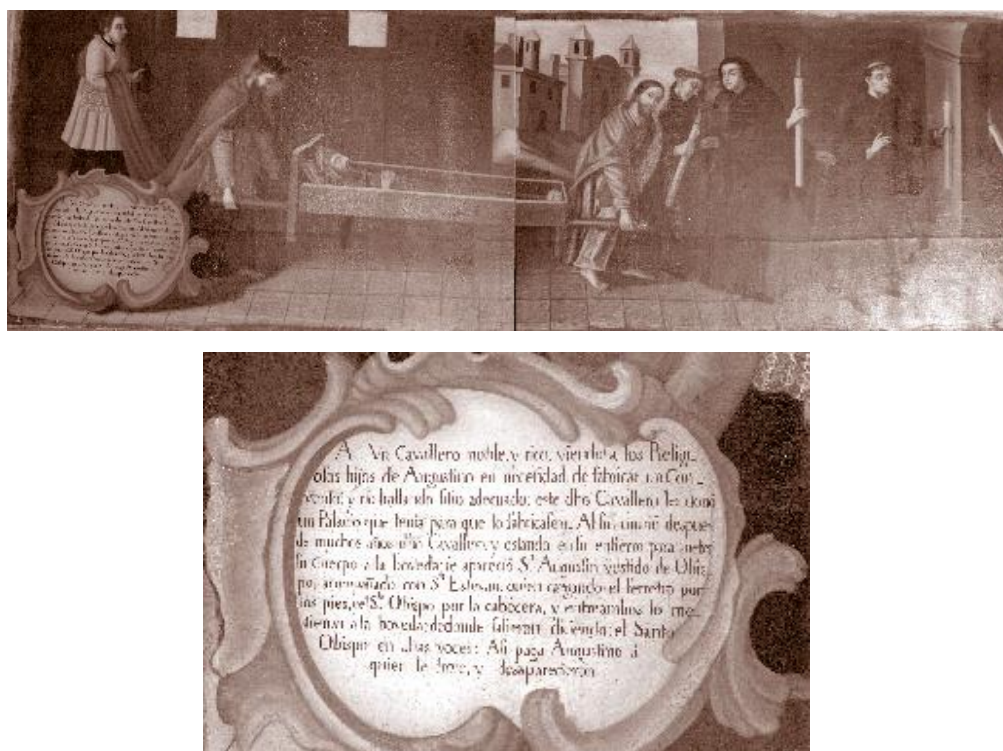 A Vn Cavallero noble, y rico, viendo a los Religi-
osos hijos de Augustino en necesidad de fabricar un Con-
vento; y no hallando sitio adecuado; este dho Cavallero les dono
un Palacio que tenia para que lo fabricasen. Al fin murio despues
de muchos años dho Cavallero, y estando en su entierro para meter
su cuerpo a la boveda se apareció Sn. Augustin vestido de Obis-
po, acompañado con Sn. Estevan, quien cargando el ferretro por
los pies, y el Sto. Obispo por la cabecera, y entreambos los me-
tieron a la boveda: de donde salieron diciendo: el Santo
Obispo en altas voces: Asi paga Augustino á
quien le sirve, y desaparecieron